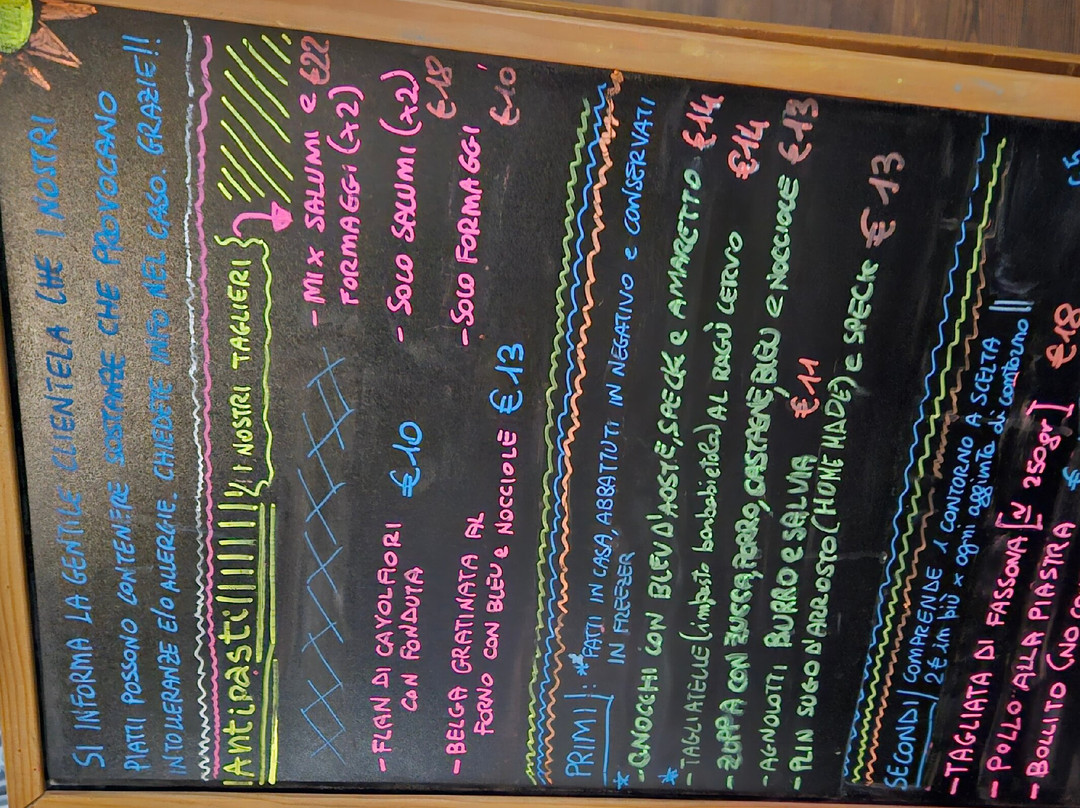 SI INFORMA LA GENTILE CLIENTELA CHE I NOSTRI
PIATTI POSSONO CONTENERE SOSTANZE CHE PROVOCANO
INTOLLERANZE E/O ALLERGIE. CHIEDETE INFO NEL CASO. GRAZIE!!
Antipasti
I NOSTRI TAGLIERI
- MIX SALUMI e €22
FORMAGGI (x2)
- SOLO SALUMI (x2)
€18
- SOLO FORMAGGI €10
- FLAN DI CAVOLFIORI
CON FONDUTA €10
- BELGA GRATINATA AL
FORNO CON BLEU e NOCCIOLE €13
PRIMI: * FATTI IN CASA, ABBATTUTI IN NEGATIVO e CONSERVATI
IN FREEZER
* - GNOCCHI CON BLEU D'AOSTE, SPECK e AMARETTO €14
* - TAGLIATELLE (impasto barbabietola) AL RAGÙ CERVO €14
- ZUPPA CON ZUCCA, PORRO, CASTAGNE, BLEU e NOCCIOLE €13
- AGNOLOTTI BURRO e SALVIA €11
- PLIN SUGO D'ARROSTO (HOME MADE) e SPECK €13
SECONDI COMPRENDE 1 CONTORNO A SCELTA
2€ in più x ogni aggiunta di contorno
- TAGLIATA DI FASSONA [N 250gr] €18
- POLLO ALLA PIASTRA
- BOLLITO (NO